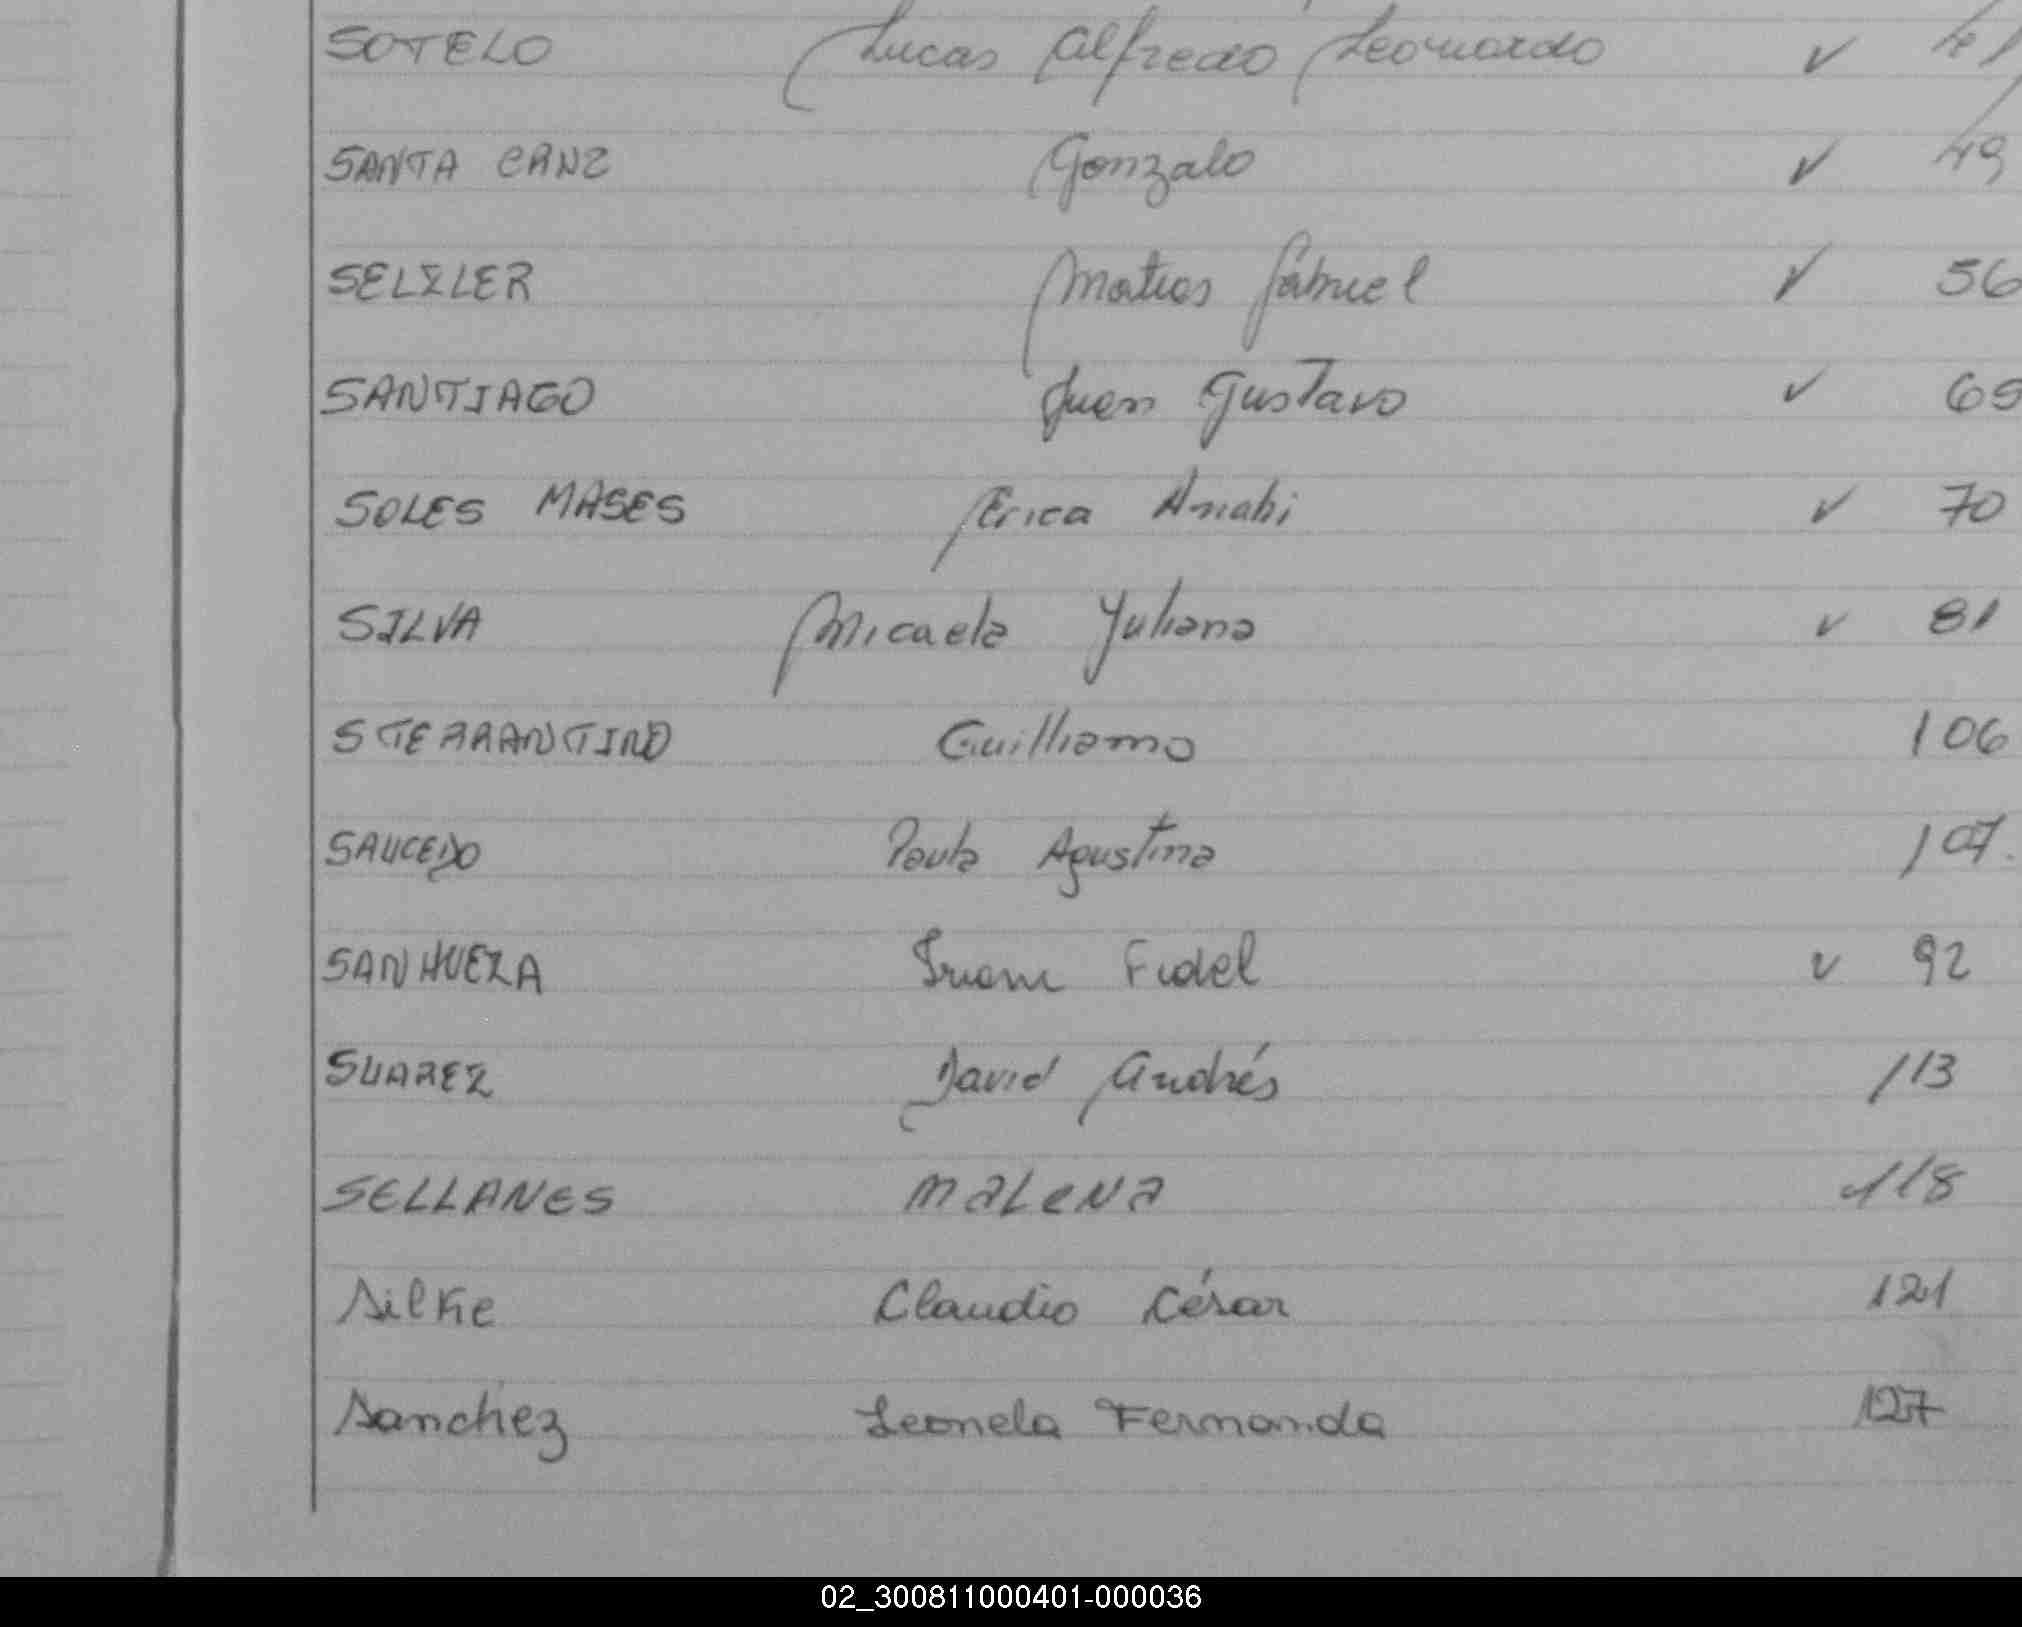 SOTELO Lucas Alfredo Leonardo ✓ 41
SANTA CRUZ Gonzalo ✓ 49
SELZLER Matias Gabriel ✓ 56
SANTIAGO Juan Gustavo ✓ 65
SOLES MASES Erica Anahi ✓ 70
SILVA Micaela Yuliana ✓ 81
STERRANTINO Guilliamo 106
SAUCEDO Paula Agustina 107.
SANHUEZA Juan Fidel ✓ 92
SUAREZ David Andrés 113
SELLANES MALENA 118
Silke Claudio César 121
Sanchez Leonela Fernanda 127
02_300811000401-000036